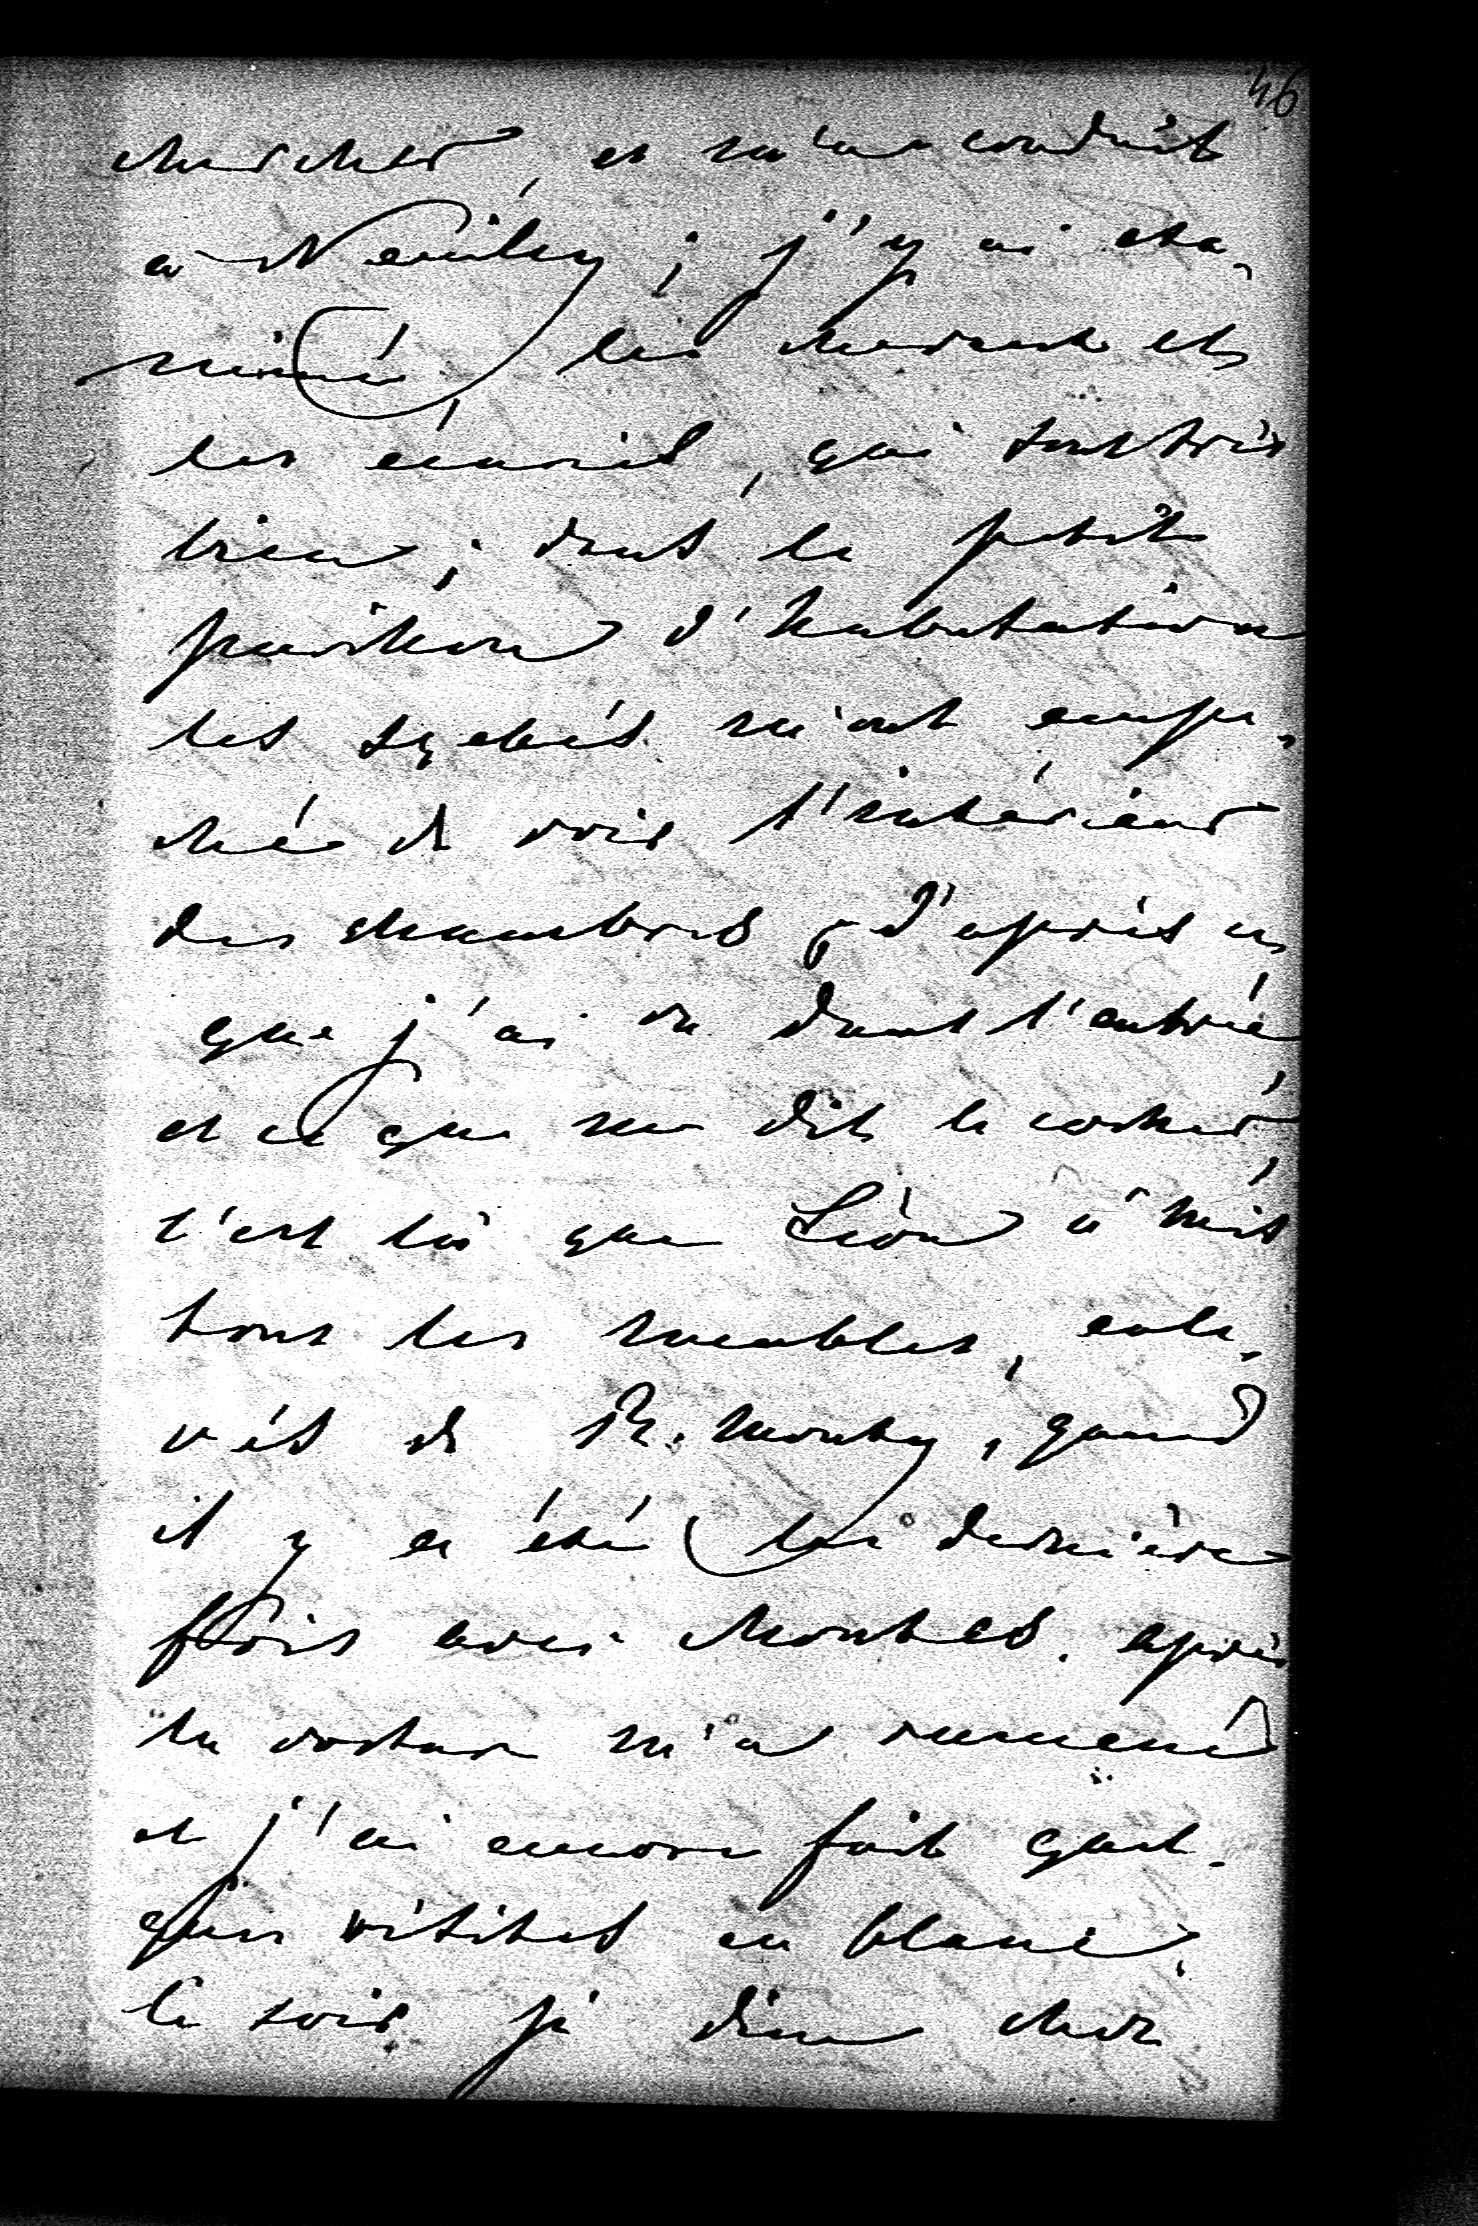 46
chercher, et m'a conduit
a Neuilly; j'y ai exa-
miné les chevaux et
les écuries, qui sont très
bien; dans le petit
pavillon d'habitation
les scellés m'ont empe-
ché de voir l'intérieur
des chambres; d'après ce
que j'ai vu dans l'entrée,
et ce que me dit le cocher,
c'est là que Léon a mis
tous les meubles, enle-
vés de Rh. Monty, quand
il y a été la dernière
fois avec Montes. après
la voiture m'a ramené
et j'ai encore fait quel-
ques visites en blanc.
le soir je dine chez